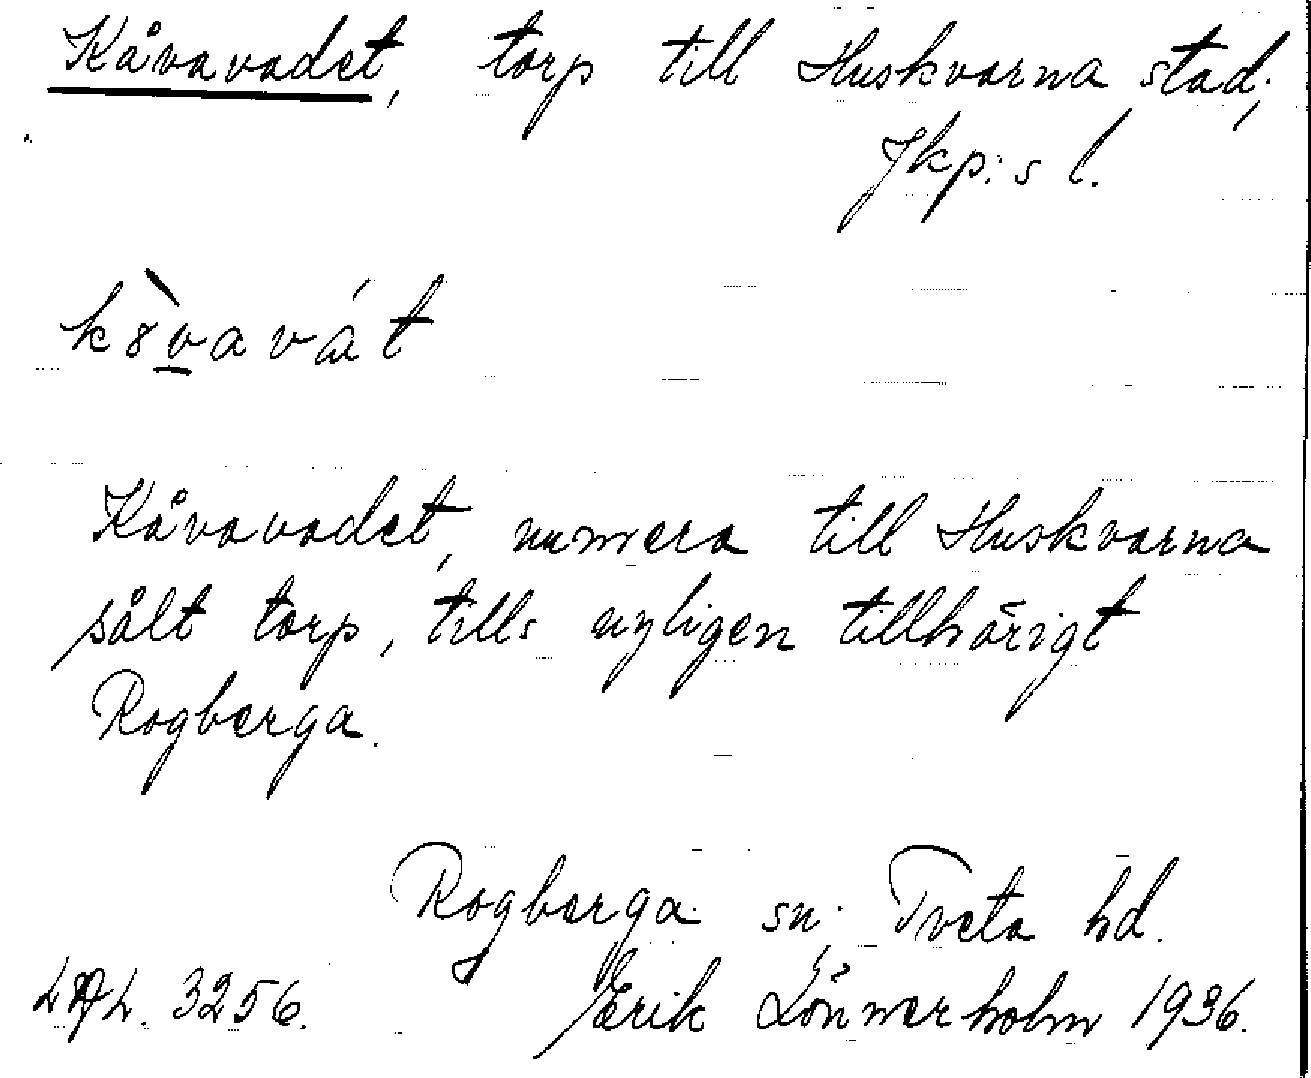 Kåvavadet, torp till Huskvarna stad,
Jkp:s l.
kòvavát
Kåvavadet, numera till Huskvarna
sålt torp, tills nyligen tillhörigt
Rogberga.
Rogberga sn; Tveta hd.
LAL. 3256. Erik Lönnerholm 1936.